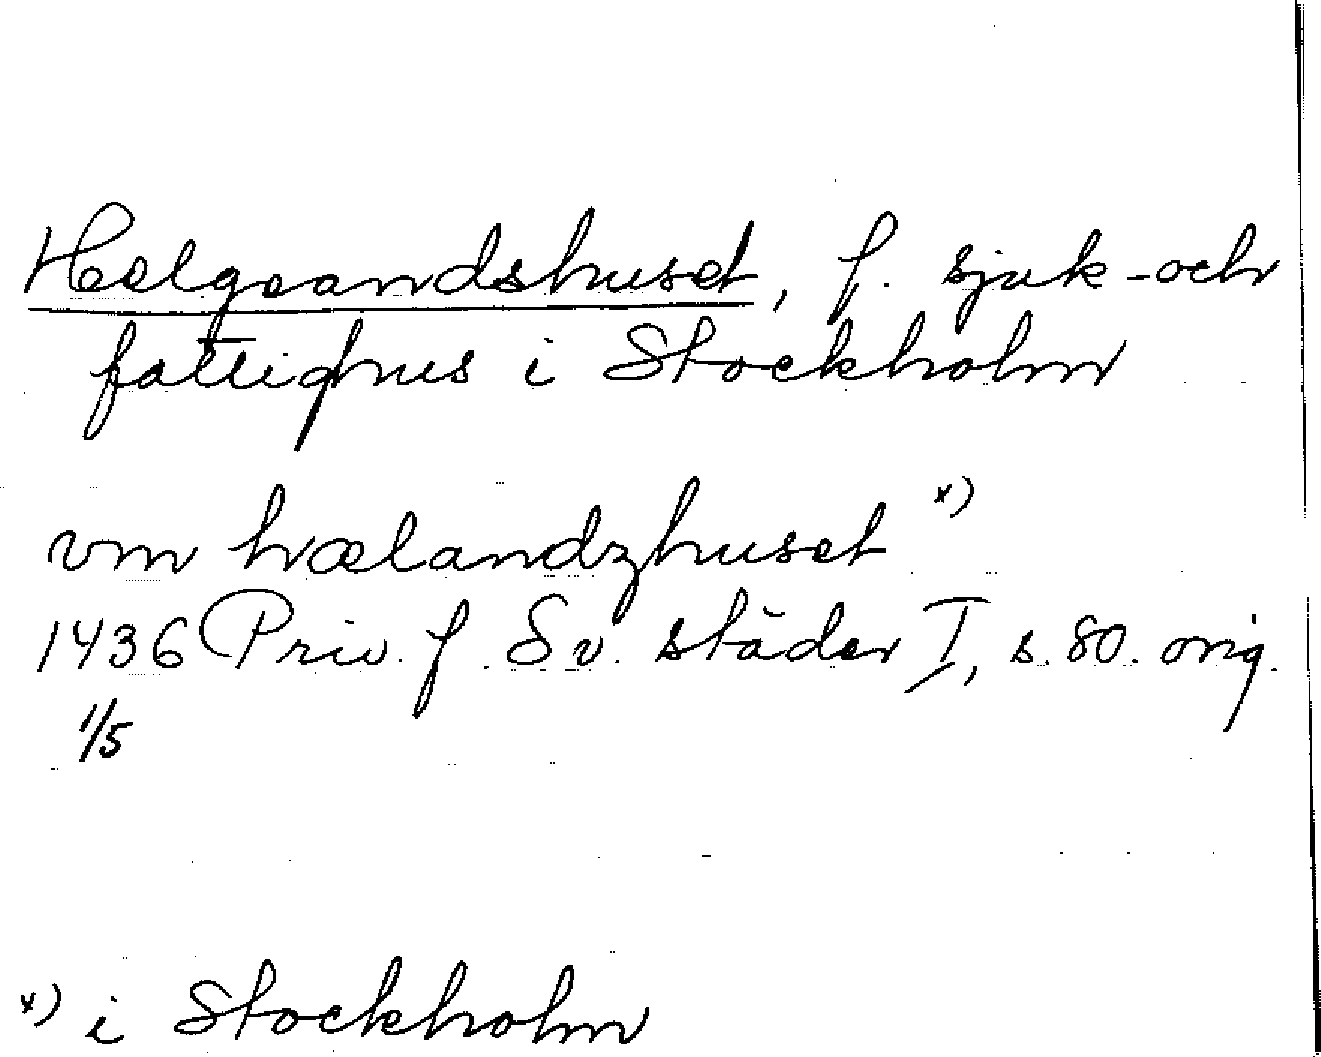 Helgeandshuset, f. sjuk- och
fattighus i Stockholm
vm hælandzhuset *)
1436 Priv. f. Sv. städer I, s. 80. orig.
1/5
*) i Stockholm